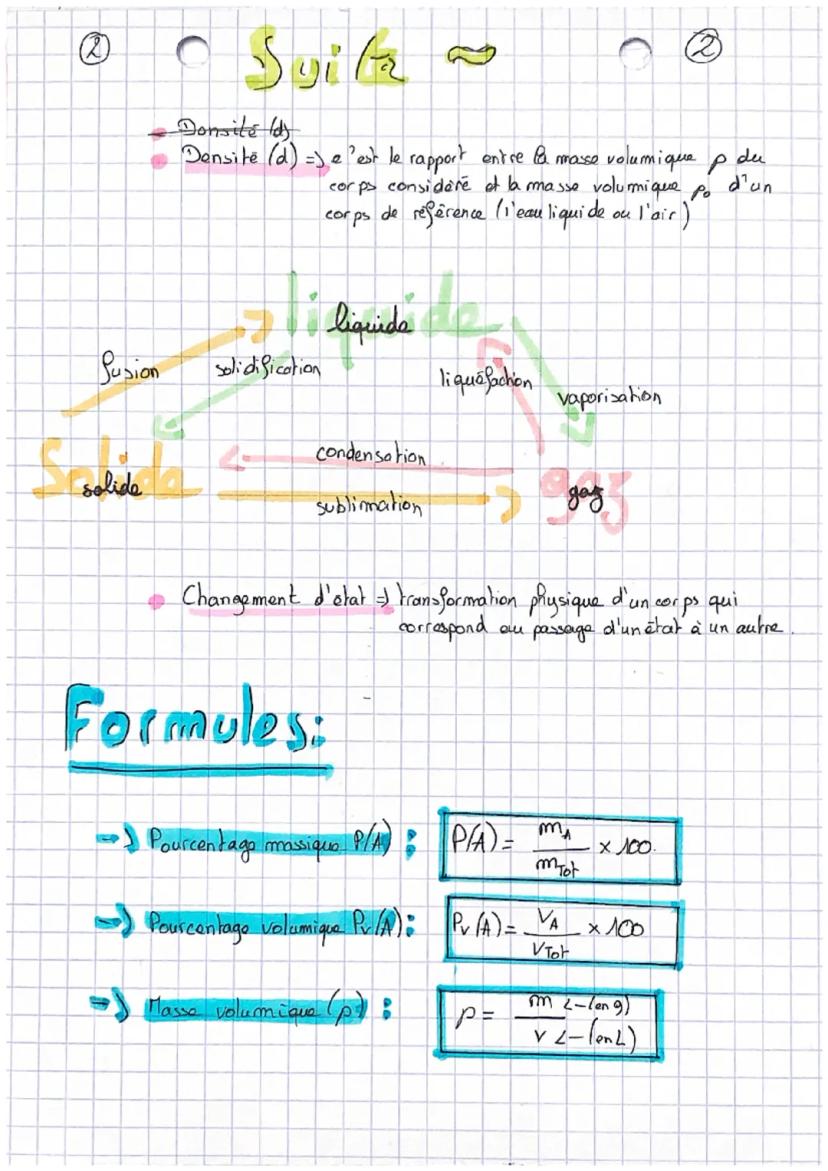 ② Suite ~ ②
Densité (d)
Densité (d) => c'est le rapport entre la masse volumique ρ du
corps considéré et la masse volumique ρ₀ d'un
corps de référence (l'eau liquide ou l'air)
liquide
liquide
fusion solidification liquéfaction vaporisation
condensation
Solide gaz
solide gaz
sublimation
Changement d'état => transformation physique d'un corps qui
correspond au passage d'un état à un autre.
Formules:
-> Pourcentage massique P(A) : P(A) = m_A / m_Tot × 100.
-> Pourcentage volumique Pv(A) : Pv(A) = V_A / V_Tot × 100
-> Masse volumique (ρ) : ρ = m <- (en g) / v <- (en L)